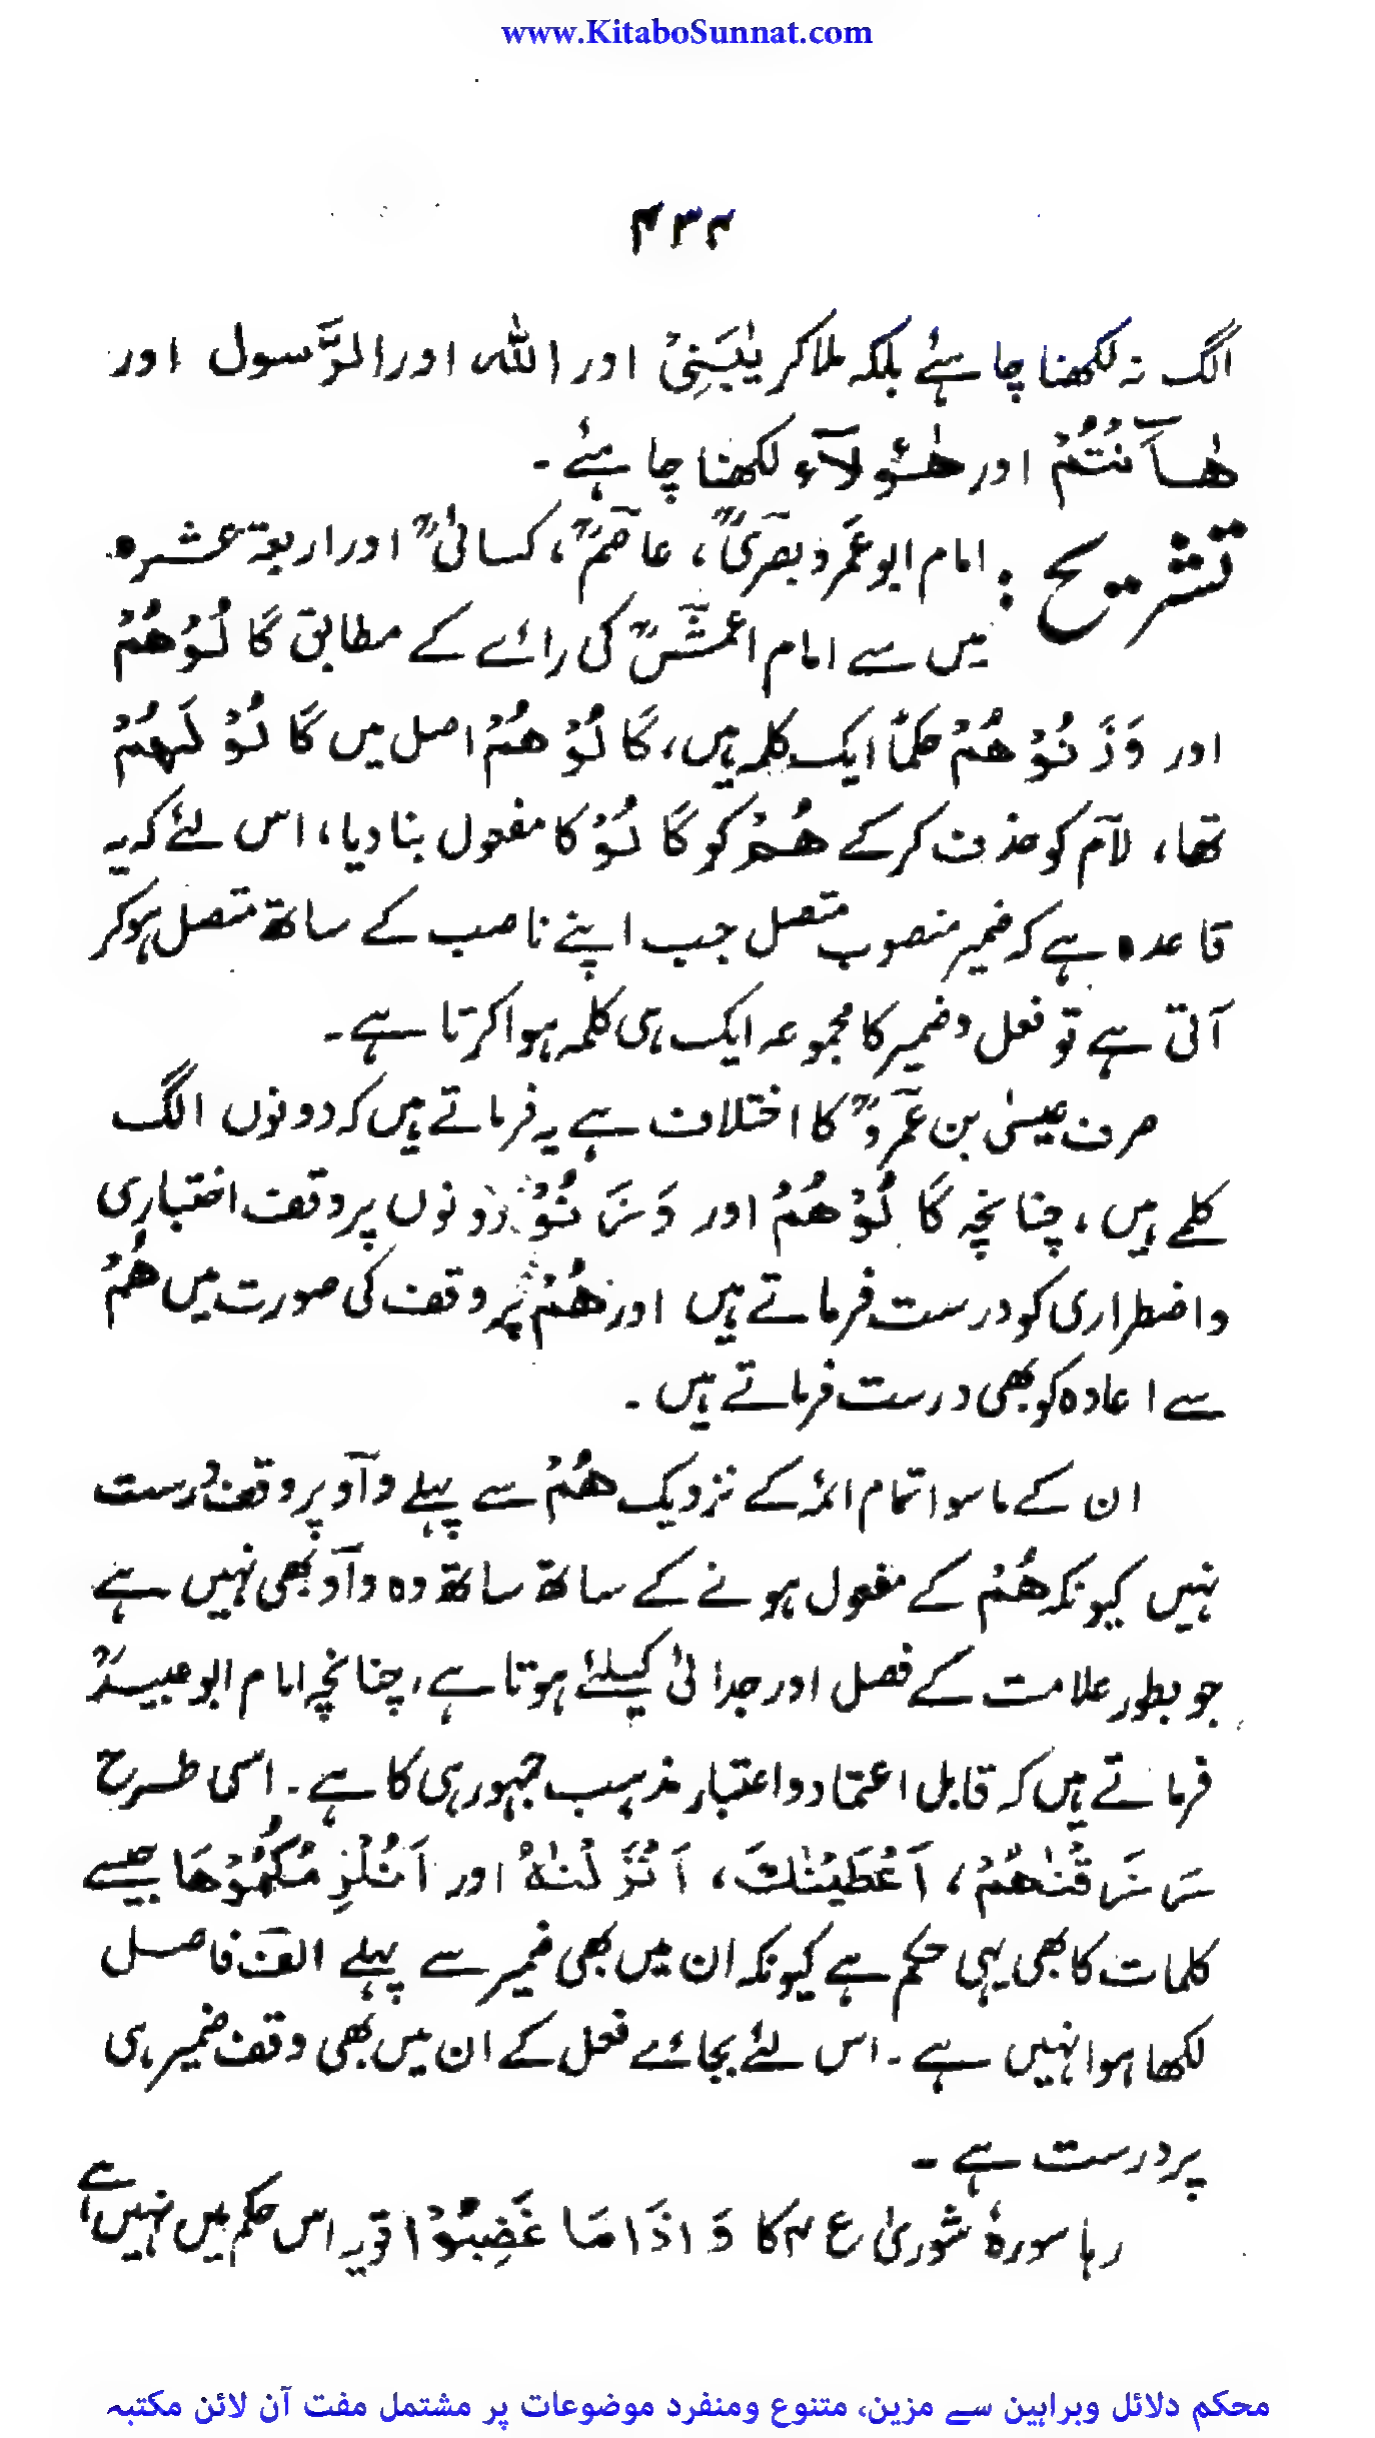 www.KitaboSunnat.com
۴۳۴
الگ نہ لکھنا چاہئے بلکہ ملا کر یٰبَنِیْ اور اللّٰہ اور الرَّسول اور
ھٰٓاَنْتُمْ اور ھٰٓؤُلَآءِ لکھنا چاہئے ۔
تشریح : امام ابو عمرو بصریؒ ، عاصمؒ ، کسائیؒ اور اربعۃ عشرہ
میں سے امام اعمشؒ کی رائے کے مطابق كَا لُوْهُمْ
اور وَزَنُوْهُمْ حکماً ایک کلمہ ہیں، كَا لُوْ هُمْ اصل میں كَا لُوْ لَهُمْ
تھا، لآم کو حذف کر کے هُمْ کو كَا لُوْ کا مفعول بنا دیا، اس لئے کہ یہ
قاعدہ ہے کہ ضمیر منصوب متصل جب اپنے ناصب کے ساتھ متصل ہو کر
آتی ہے تو فعل و ضمیر کا مجموعہ ایک ہی کلمہ ہوا کرتا ہے۔
صرف عیسیٰ بن عمروؒ کا اختلاف ہے یہ فرماتے ہیں کہ دونوں الگ
کلمے ہیں ، چنانچہ كَا لُوْ هُمْ اور وَزَنُوْ دونوں پر وقف اختباری
واضطراری کو درست فرماتے ہیں اور هُمْ پر وقف کی صورت میں هُمْ
سے اعادہ کو بھی درست فرماتے ہیں ۔
ان کے ماسوا تمام ائمہ کے نزدیک هُمْ سے پہلے وآو پر وقف دُرست
نہیں کیونکہ هُمْ کے مفعول ہونے کے ساتھ ساتھ وہ وآو بھی نہیں ہے
جو بطور علامت کے فصل اور جدائی کیلئے ہوتا ہے، چنانچہ امام ابو عبیدؒ
فرماتے ہیں کہ قابل اعتماد و اعتبار مذہب جمہور ہی کا ہے۔ اسی طرح
رَزَقْنٰهُمْ، اَعْطَيْنٰكَ، اَنْزَلْنٰهُ اور اَنُلْزِمُكُمُوْهَا جیسے
کلمات کا بھی یہی حکم ہے کیونکہ ان میں بھی ضمیر سے پہلے الف فاصل
لکھا ہوا نہیں ہے۔ اس لئے بجائے فعل کے ان میں بھی وقف ضمیر ہی
پر درست ہے ۔
رہا سورۂ شوریٰ ع ۴ کا وَ اِذَا مَا غَضِبُوْا تو یہ اس حکم میں نہیں ہے
محکم دلائل وبراہین سے مزین، متنوع ومنفرد موضوعات پر مشتمل مفت آن لائن مکتبہ